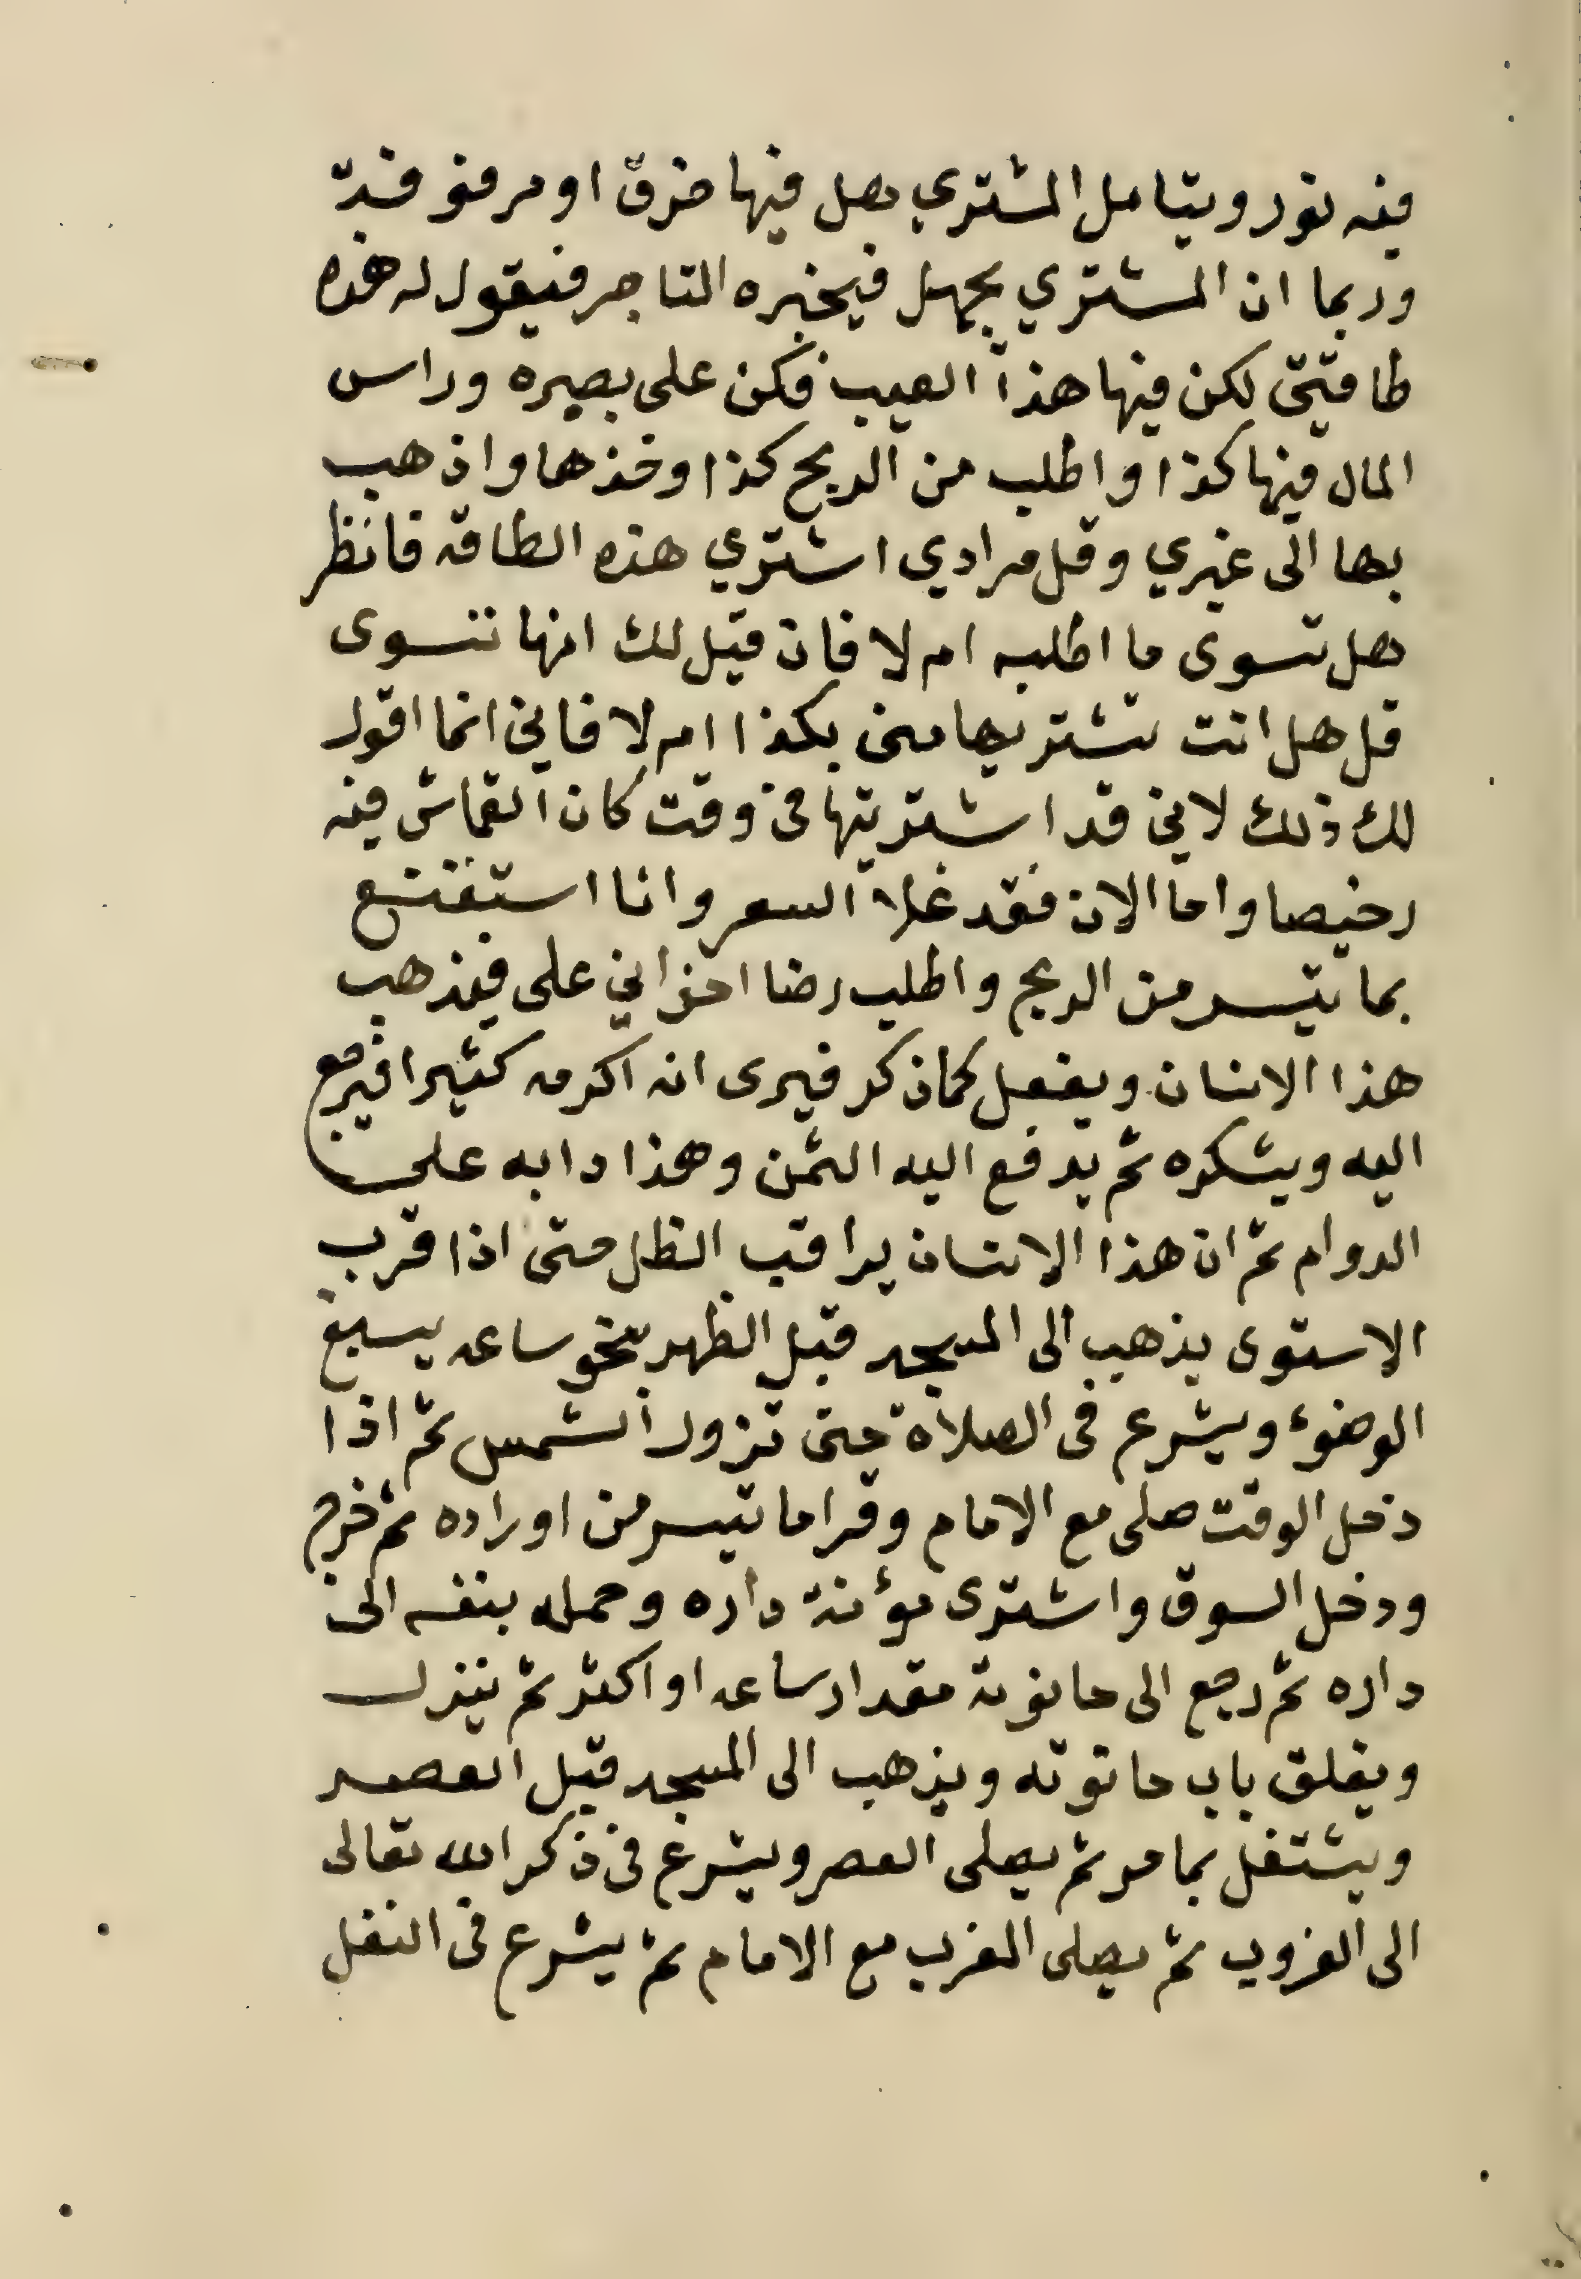 فيه نور ويتامل المشتري هل فيها خرق او مرفو فيدة
وربما ان المشتري يجهل فيخبره التاجر فيقول له هذه
طاقيتي لكن فيها هذا العيب فكن على بصيره وراس
المال فيها كذا واطلب من الربح كذا وخذها واذهب
بها الى غيري وقل مرادي اشتري هذه الطاقه فانظر
هل تسوى ما اطلبه ام لا فان قيل لك انها تسوى
قل هل انت تشتريها مني بكذا ام لا فاني انما اقول
لك ذلك لاني قد اشتريتها في وقت كان القماش فيه
رخيصا واما الان فقد غلا السعر وانا استقنع
بما تيسر من الربح واطلب رضا اخواني على فيذهب
هذا الانسان ويفعل كما ذكر فيرى انه اكرمه كثيرا فيرجع
اليه ويشكره ثم يدفع اليه الثمن وهذا دابه على
الدوام ثم ان هذا الانسان يراقب الظل حتى اذا قرب
الاستوى يذهب الى المسجد قبل الظهر بنحو ساعه يسبغ
الوضوء ويشرع في الصلاة حتى تزول الشمس ثم اذا
دخل الوقت صلى مع الامام وقرا ما تيسر من اوراده ثم خرج
ودخل السوق واشترى مؤنة داره وحمله بنفسه الى
داره ثم رجع الى حانوته مقدار ساعه او اكثر ثم ينزل
ويغلق باب حانوته ويذهب الى المسجد قبل العصر
ويشتغل بما مر ثم يصلى العصر ويشرع في ذكر الله تعالى
الى الغروب ثم يصلى المغرب مع الامام ثم يشرع في النفل